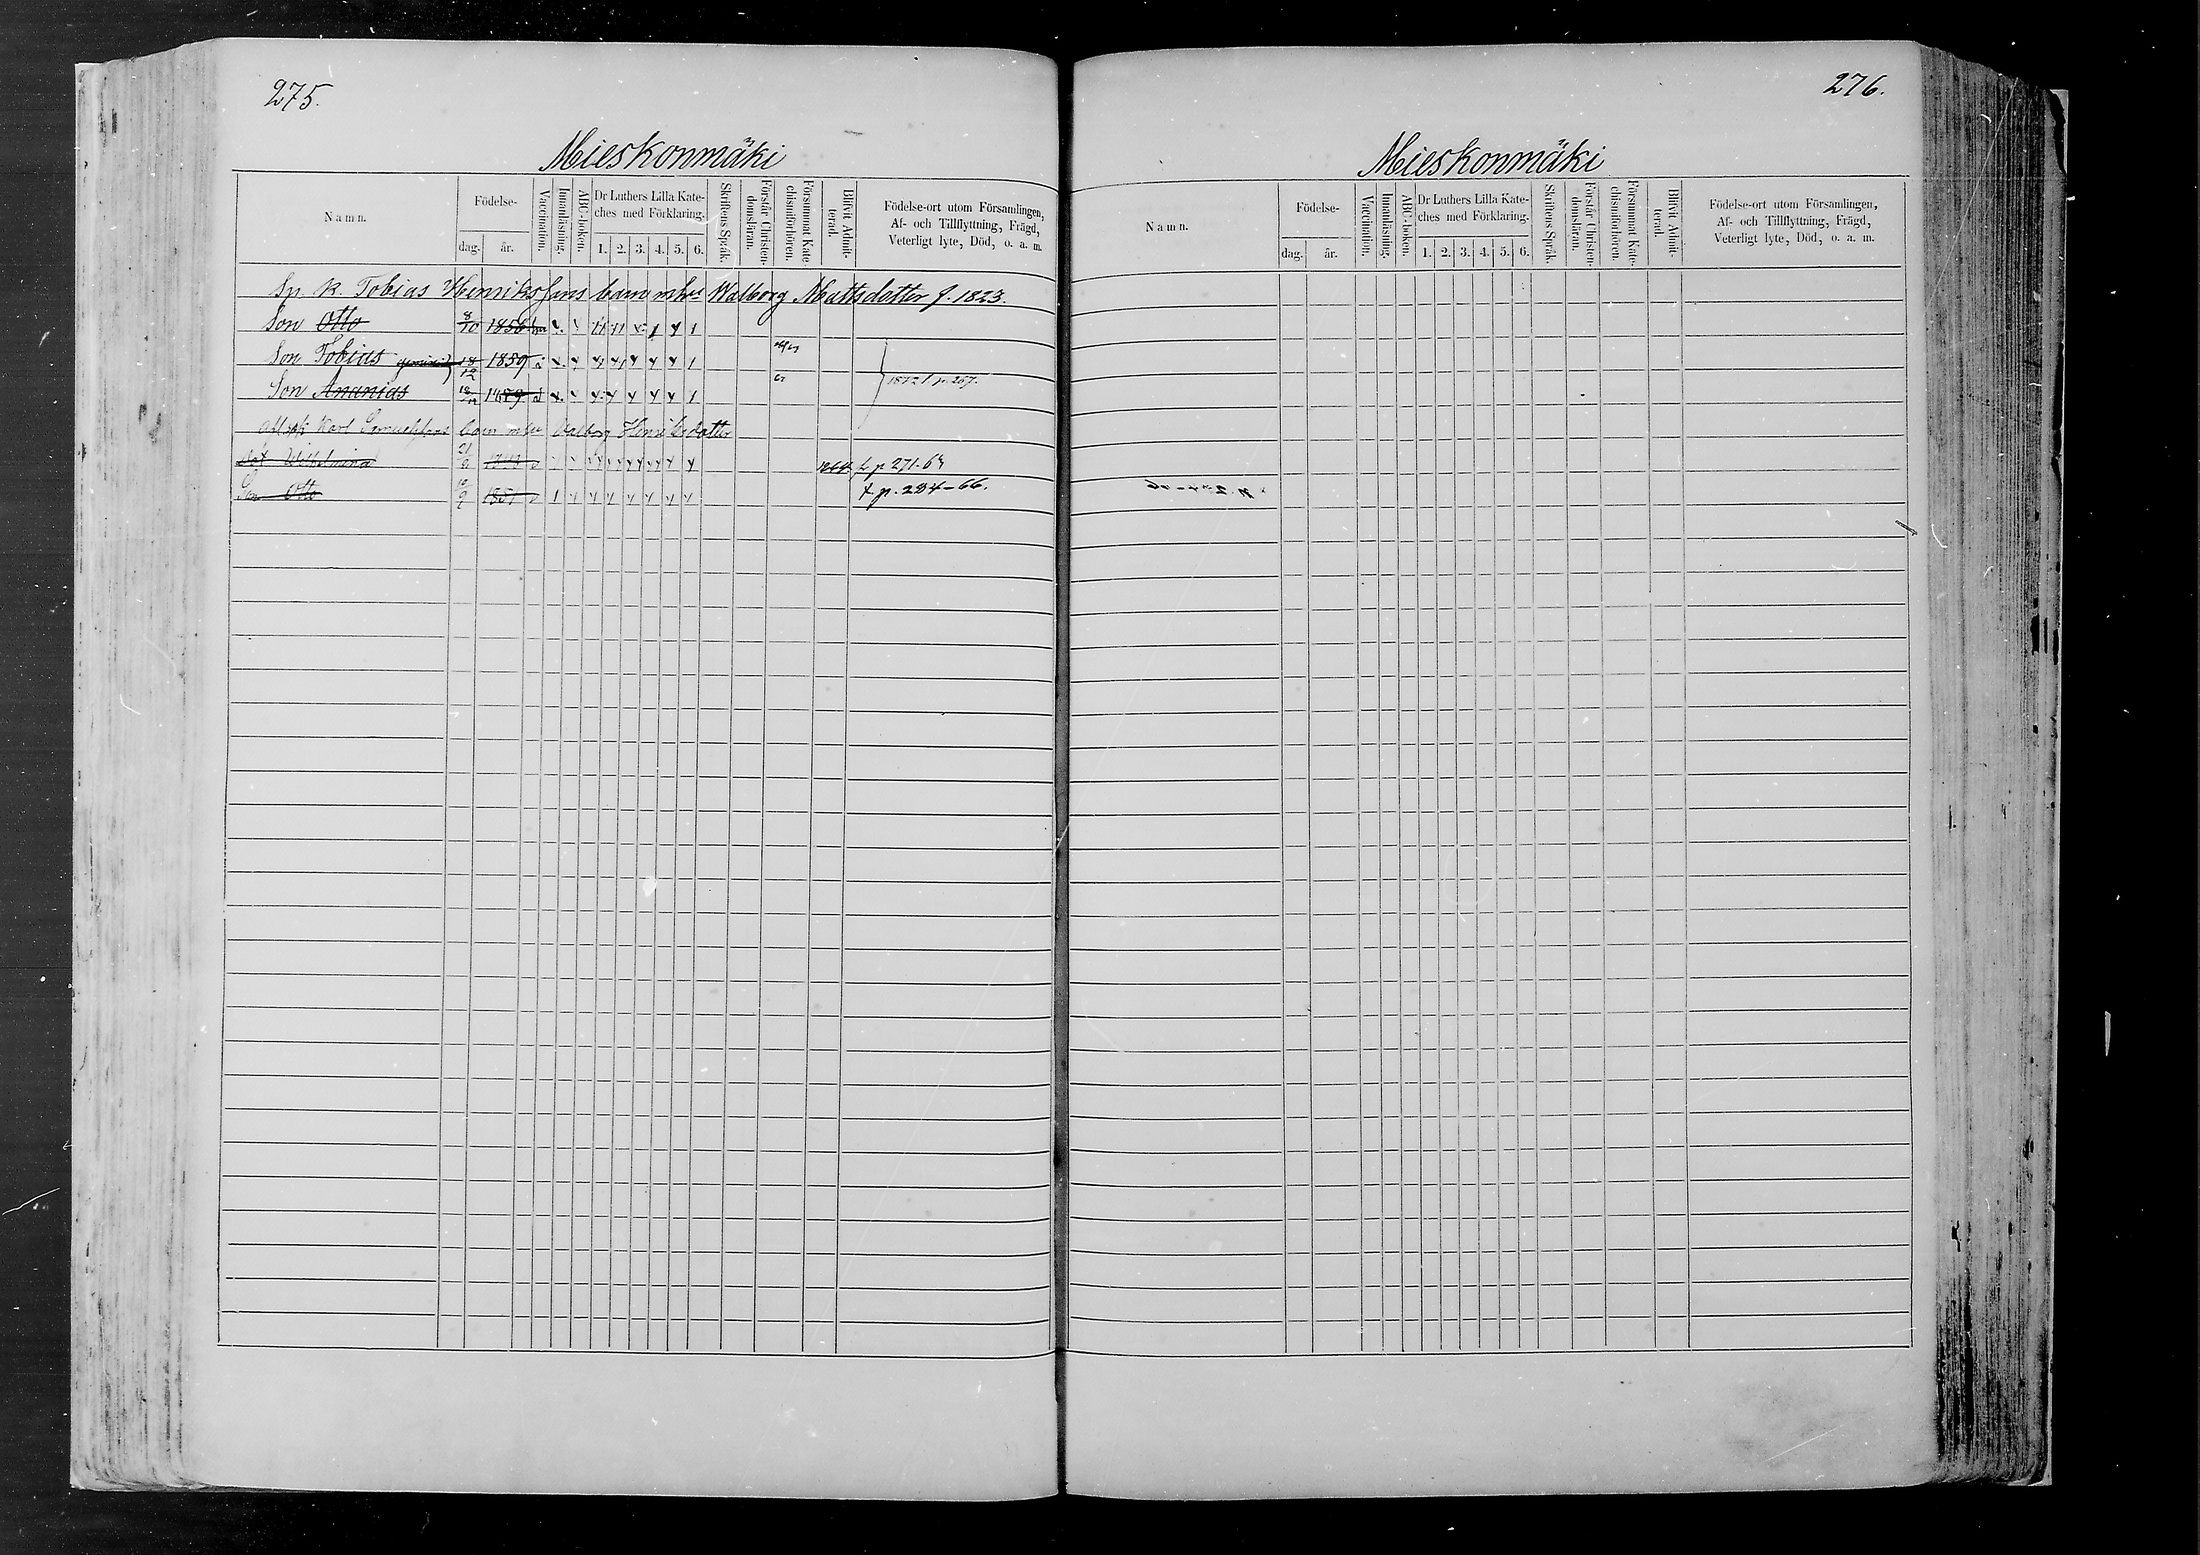 275.
Mieskonmäki
Namn.
Födelse-
dag. år.
Vaccination.
Innanläsning.
ABC-boken.
Dr Luthers Lilla Kate-
ches med Förklaring.
1. 2. 3. 4. 5. 6.
Skriftens Språk.
Förstår Christen-
domsläran.
Försummat Kate-
chismiförhören.
Blifvit Admit-
terad.
Födelse-ort utom Församlingen,
Af- och Tillflyttning, Frägd,
Veterligt lyte, Död, o. a. m.
Sn. k. Tobias Henrikssons barn mhu Walborg Mattsdotter f. 1823.
Son Otto 8/10 1856
Son Tobias 18/12 1859
Son Ananias 18/12 1859 1872 f p. 267.
Karl Samuelssons barn mhu Valborg Henriksdotter
Dot Wilhelmina 21/9 1864 f p 271. 67
Son Otto 10/9 1851 f. p. 284-66.
276.
Mieskonmäki
Namn.
Födelse-
dag. år.
Vaccination.
Innanläsning.
ABC-boken.
Dr Luthers Lilla Kate-
ches med Förklaring.
1. 2. 3. 4. 5. 6.
Skriftens Språk.
Förstår Christen-
domsläran.
Försummat Kate-
chismiförhören.
Blifvit Admit-
terad.
Födelse-ort utom Församlingen,
Af- och Tillflyttning, Frägd,
Veterligt lyte, Död, o. a. m.